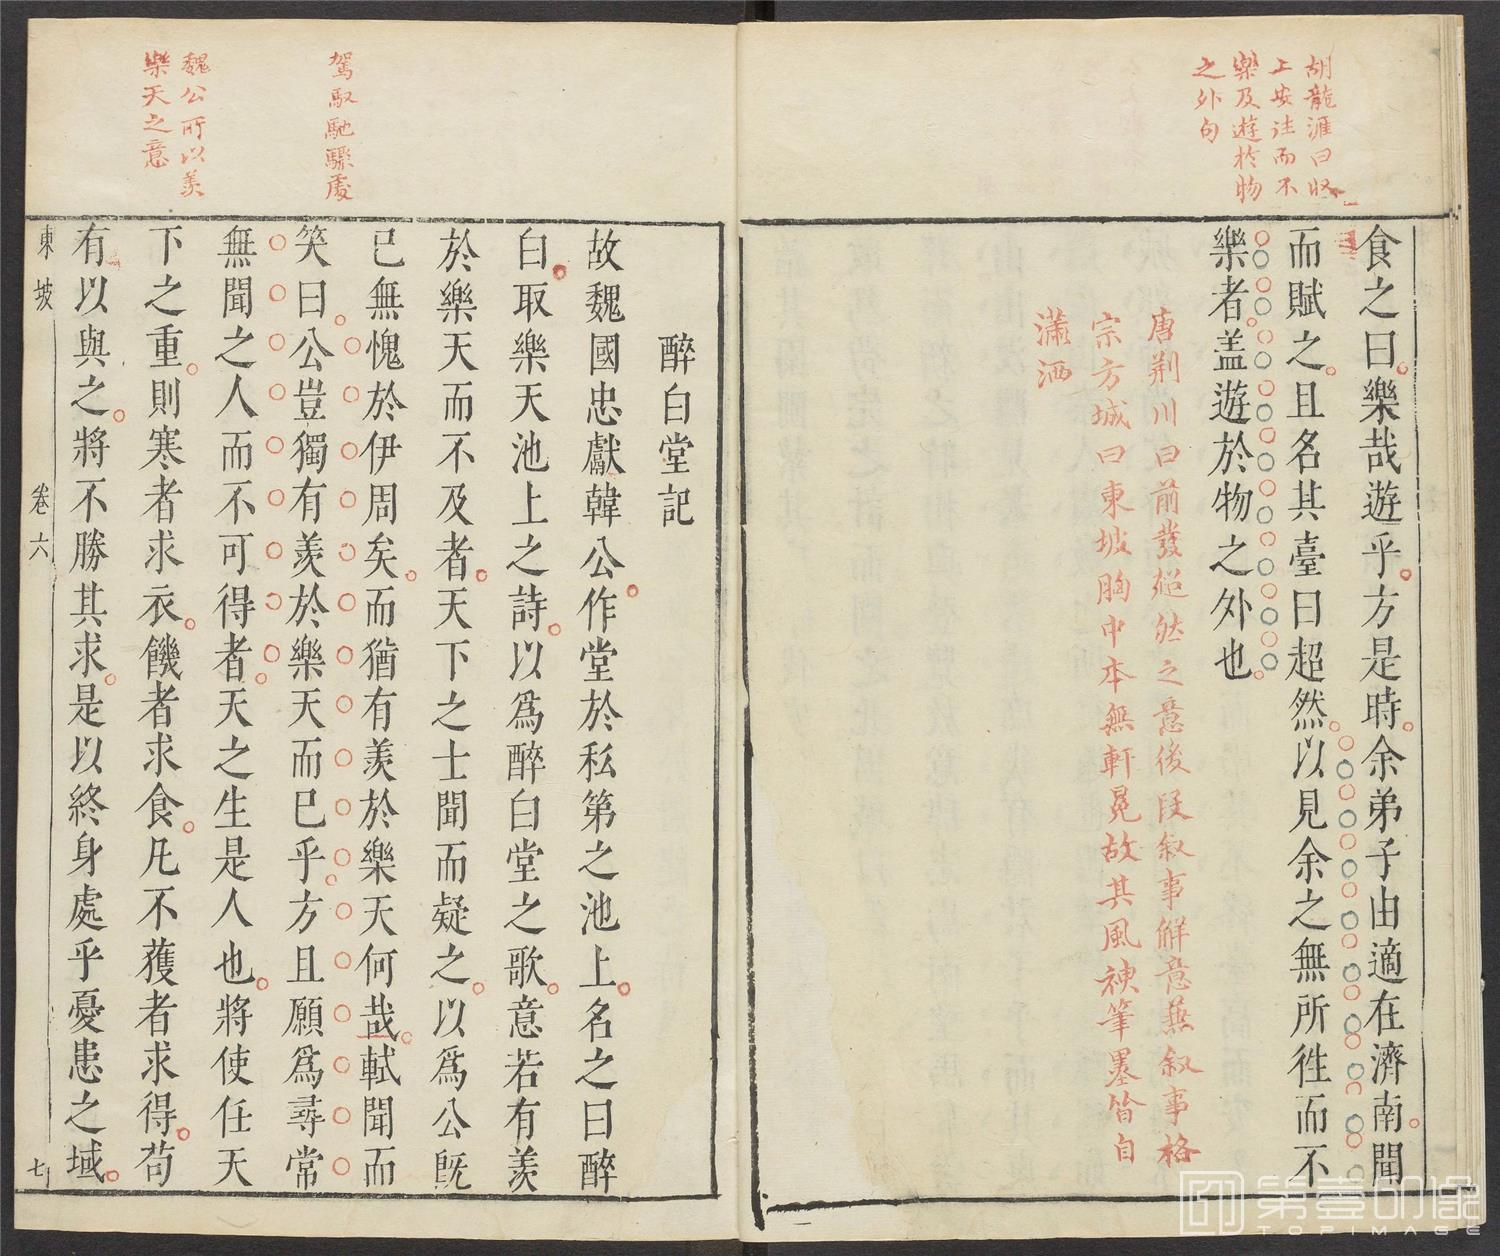 胡龍涯曰收
上安注而不
樂及遊於物
之外句
食之曰樂哉遊乎方是時余弟子由適在濟南聞
而賦之且名其臺曰超然以見余之無所徃而不
樂者盖遊於物之外也
唐荆川曰前發超然之意後段叙事解意兼叙事格
宗方城曰東坡胸中本無軒冕故其風神筆墨皆自
瀟洒
醉白堂記
故魏國忠獻韓公作堂於私第之池上名之曰醉
白取樂天池上之詩以爲醉白堂之歌意若有羨
於樂天而不及者天下之士聞而疑之以爲公旣
已無愧於伊周矣而猶有羨於樂天何哉軾聞而
笑曰公豈獨有羨於樂天而已乎方且願爲尋常
無聞之人而不可得者天之生是人也將使任天
下之重則寒者求衣饑者求食凡不獲者求得苟
有以與之將不勝其求是以終身處乎憂患之域
駕馭馳驟處
魏公所以羨
樂天之意
東坡 卷六 七
第壹印像
TOPIMAGE